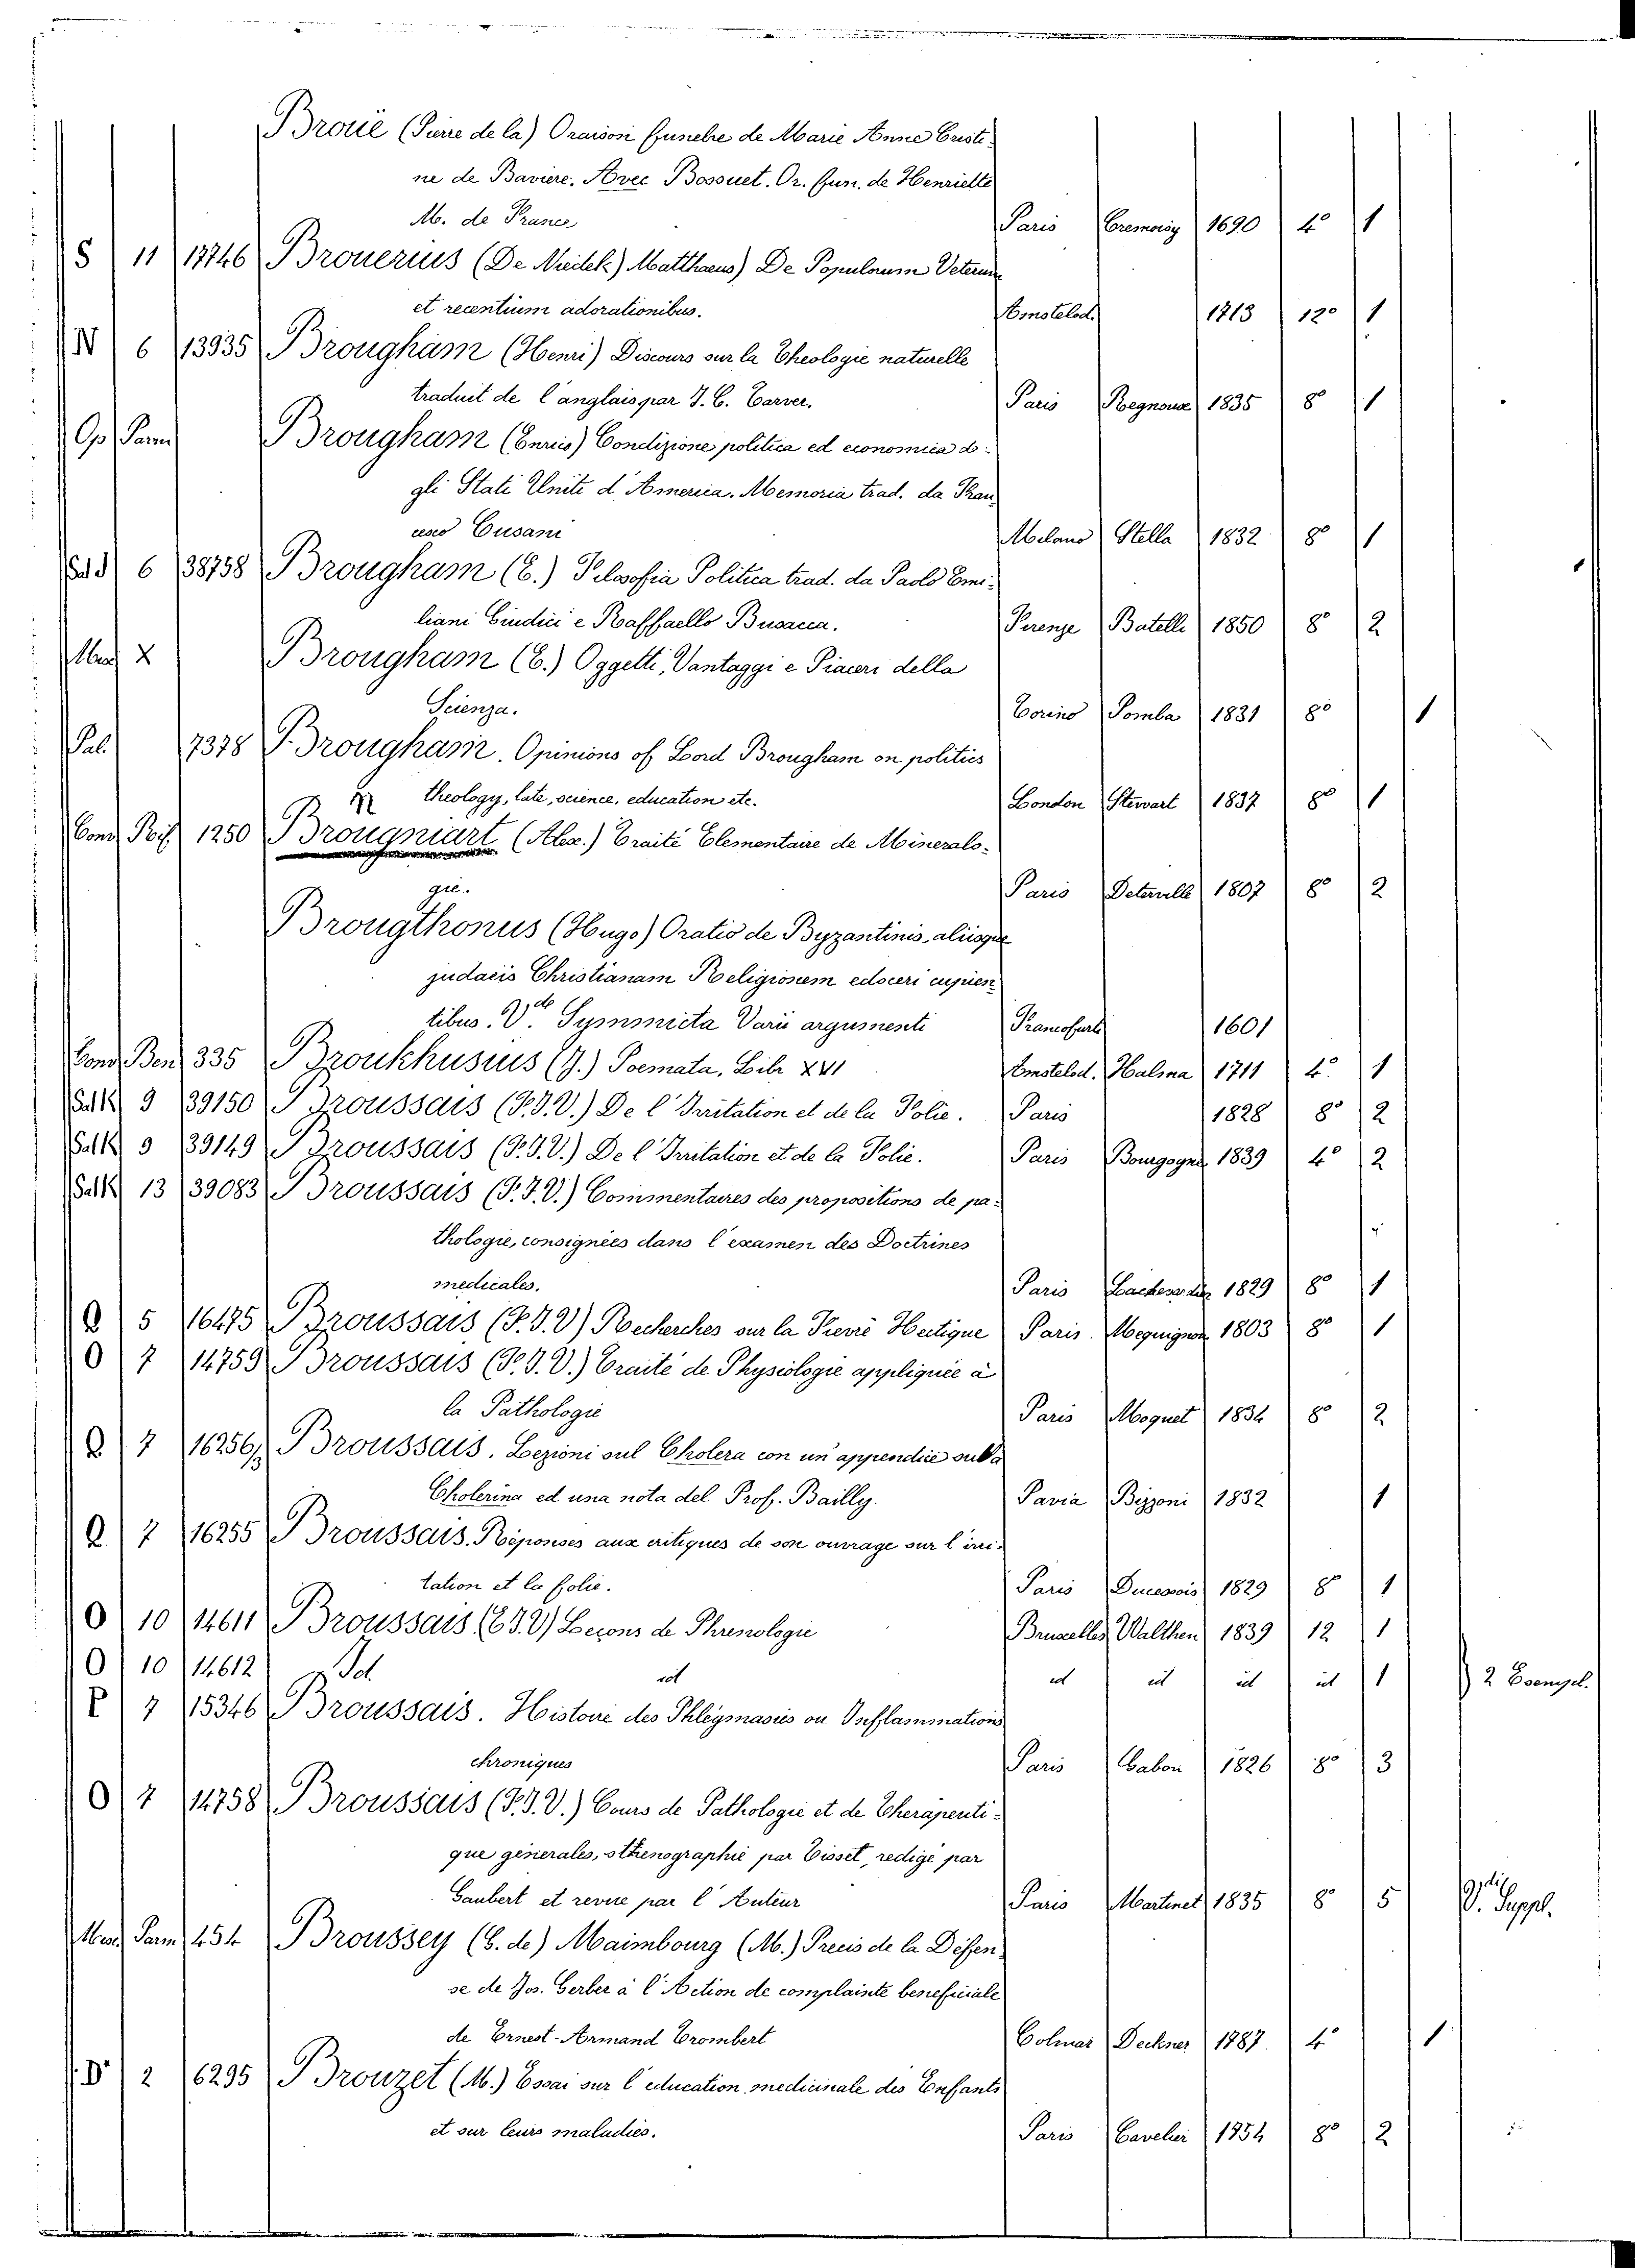 Broüe (Pierre de la) Oraison funebre de Marie Anne Cristi-
ne de Baviere. Avec Bossuet. Or. fun. de Henriette
M. de France Paris Cremoisy 1690 4° 1
S 11 17746 Brouerius (De Niedek) Matthaeus) De Populorum Veterum
et recentium adorationibus. Amstelod. 1713 12° 1
N 6 13935 Brougham (Henri) Discours sur la Theologie naturelle
traduit de l'anglais par J. C. Tarver. Paris 1835 8° 1
Op. Parm Brougham (Enrico) Condizione politica ed economica de-
gli Stati Uniti d'America. Memoria trad. da Fran
cesco Cusani Milano Stella 1832 8° 1
Sal J 6 38758 Brougham (E.) Filosofia Politica trad. da Paolo Emi-
liani Giudici e Raffaello Busacca. Firenze Batelli 1850 8° 2
X Brougham (E.) Oggetti, Vantaggi e Piaceri della
Scienza. Torino Pomba 1831 8° 1
Pal. 7378 Brougham. Opinions of Lord Brougham on politics
theology, late, science, education etc. London Stewart 1837 8° 1
Cond. 1250 Brougniart (Alex.) Traité Elementaire de Mineralo-
gie. Paris Deterville 1807 8° 2
Brougthonus (Hugo) Oratio de Byzantinis aliisque
judaeis Christianam Religionem edoceri cupien-
tibus. V.de Symmicta Varii argumenti Francofurti 1601
Cond. Ben 335 Broukhusius (J.) Poemata. Libr XVI Amstelod. Halma 1711 4° 1
Sal K 9 39150 Broussais (F. J. V.) De l'Irritation et de la Folie. Paris 1828 8° 2
Sal K 9 39149 Broussais (F. J. V.) De l'Irritation et de la Folie. Paris Bourgogne 1839 4° 2
Sal K 13 39083 Broussais (F. J. V.) Commentaires des propositions de pa-
thologie, consignées dans l'examen des Doctrines
medicales. Paris 1829 8° 1
Q 5 16475 Broussais (F. J. V) Recherches sur la Fievre Hectique Paris. Mequignon 1803 8° 1
O 7 14759 Broussais (F. J. V.) Traité de Physiologie appliquée à
la Pathologie Paris Moquet 1834 8° 2
Q 7 16256 Broussais. Lezioni sul Cholera con un'appendice sulla
Cholerina ed una nota del Prof. Bailly. Pavia Bizzoni 1832 1
Q 7 16255 Broussais. Réponses aux critiques de son ouvrage sur l'irri-
tation et la folie. Paris 1829 8° 1
O 10 14611 Broussais (F. J. V) Leçons de Phrenologie Bruxelles Walthen 1839 12 1
O 10 14612 Id. id id id id id 1 2 Esempl.
P 7 15346 Broussais. Histoire des Phlegmasies ou Inflammations
chroniques Paris Gabon 1826 8° 3
O 7 14758 Broussais (F. J. V.) Cours de Pathologie et de Therapeuti-
que generales, sthenographie par Tisset, redigé par
Gaubert et revue par l'Auteur Paris Martinet 1835 8° 5 V. Suppl.
Misc. Parm 454 Broussey (G. de) Maimbourg (M.) Precis de la Défen-
se de Jos. Gerber à l'Action de complainte beneficiale
de Ernest-Armand Trombert Colmar Deckner 1787 4° 1
D' 2 6295 Brouzet (M.) Essai sur l'education medicinale des Enfants
et sur leurs maladies. Paris Cavelier 1754 8° 2